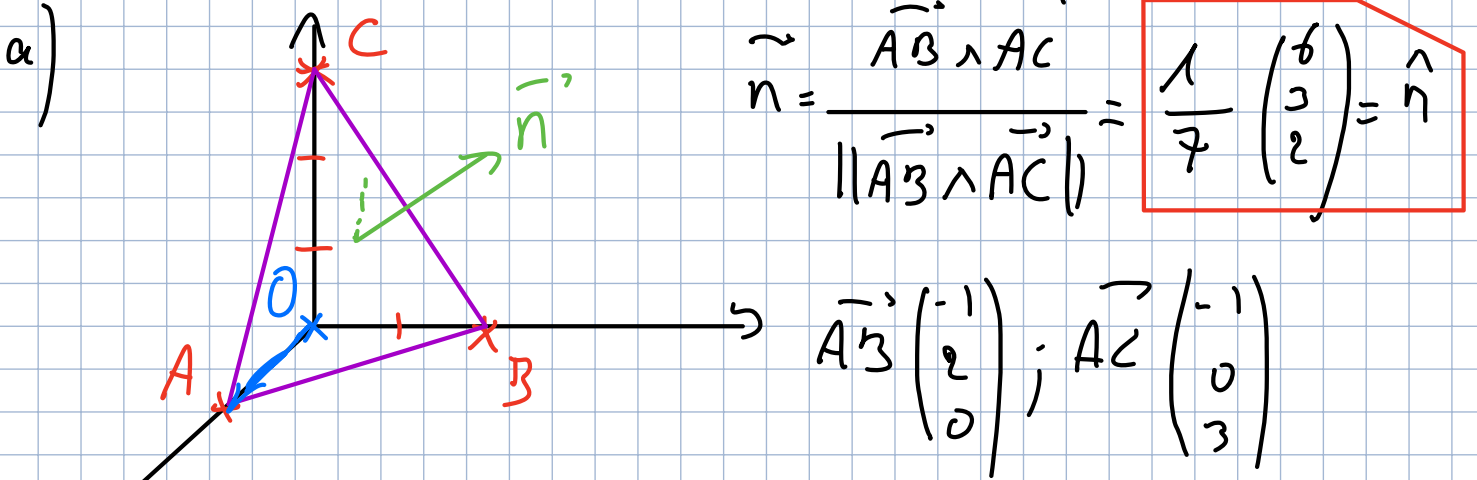 a)
C
n⃗
O
A
B
n⃗ = (AB⃗ ∧ AC⃗) / ||AB⃗ ∧ AC⃗|| = 1/7 (6 3 2) = n̂
AB⃗ (-1 2 0) ; AC⃗ (-1 0 3)